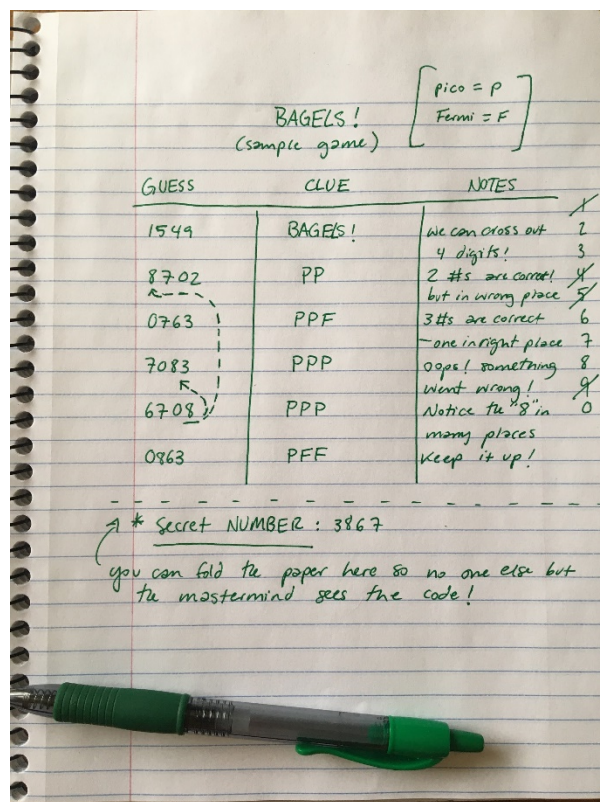 pico = P
Fermi = F
BAGELS!
(sample game)
GUESS CLUE NOTES
1
1549 BAGELS! we can cross out 2
4 digits! 3
8702 PP 2 #s are correct! 4
but in wrong place 5
0763 PPF 3 #s are correct 6
- one in right place 7
7083 PPP oops! something 8
went wrong! 9
6708 PPP Notice the "8" in 0
many places
0863 PFF Keep it up!
* Secret NUMBER : 3867
you can fold the paper here so no one else but
the mastermind sees the code!